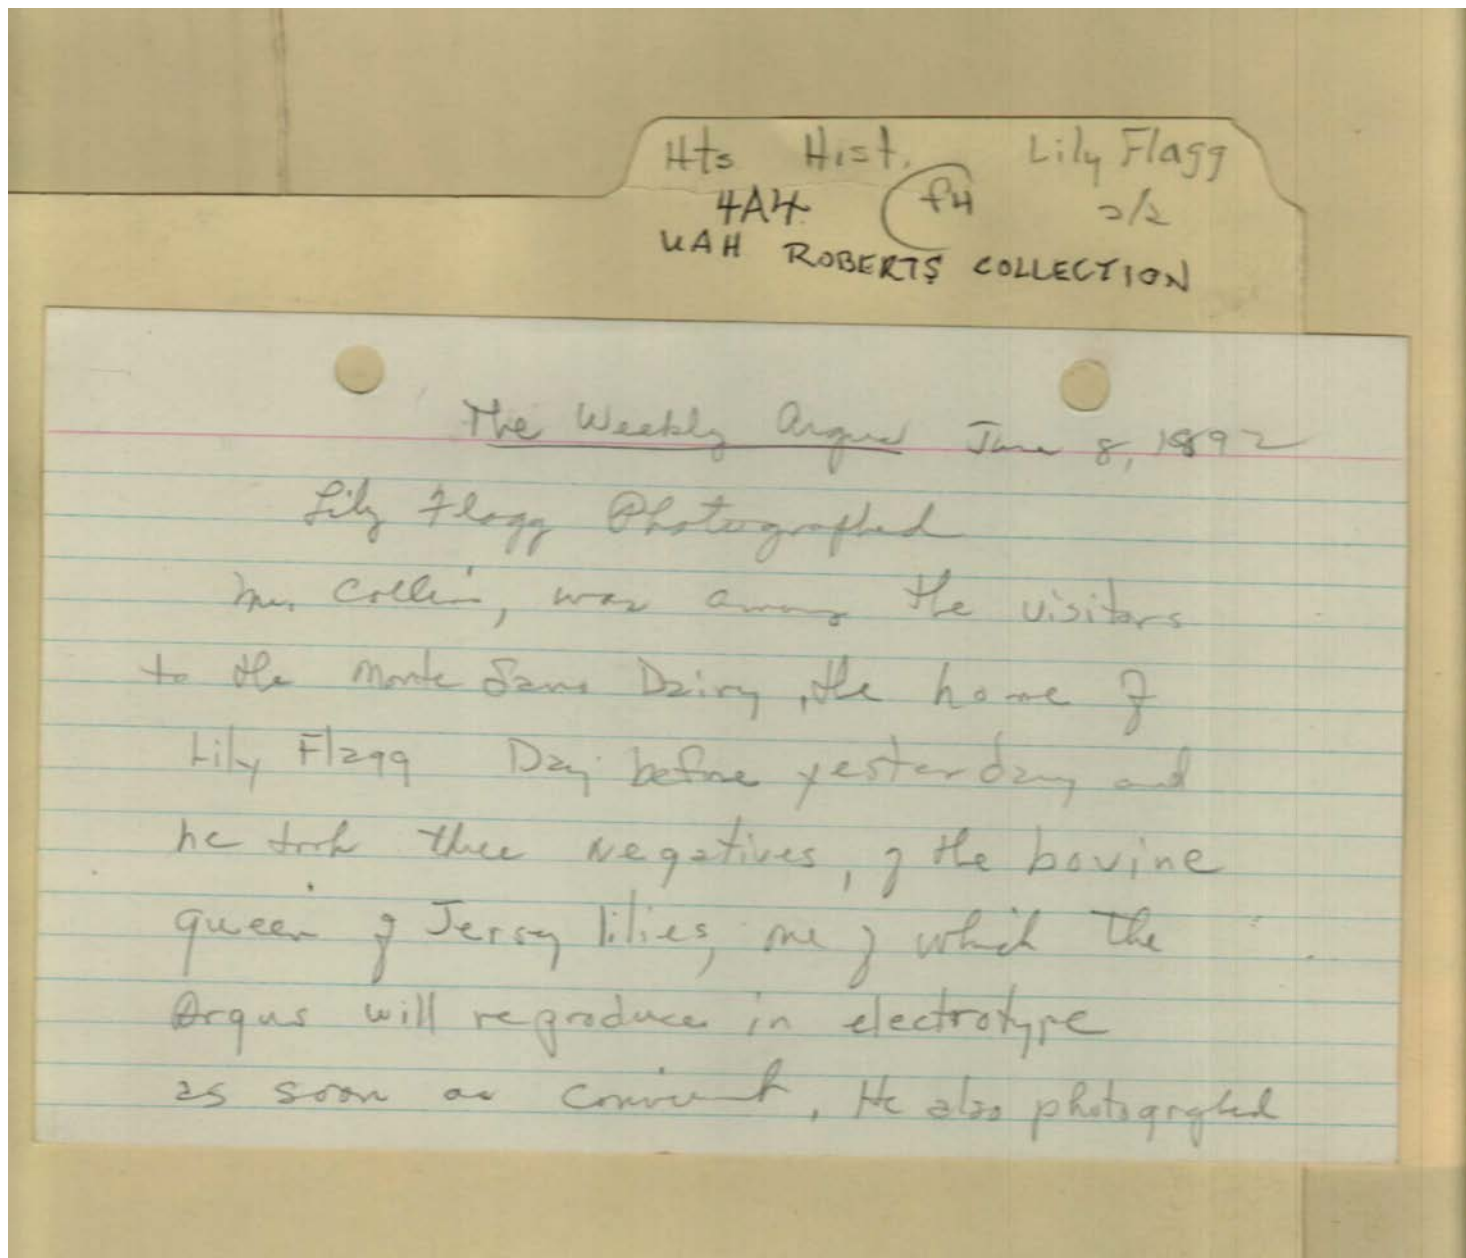 Hts Hist. Lily Flagg
4A4 f4 2/2
UAH ROBERTS COLLECTION
The Weekly Argus June 8, 1892
Lily Flagg Photographed
Mr. Collin, was among the visitors
to the Monte Sano Dairy, the home of
Lily Flagg Day before yesterday and
he took three negatives, of the bovine
queen of Jersey lilies, one of which the
Argus will reproduce in electrotype
as soon as convient, He also photogrphed